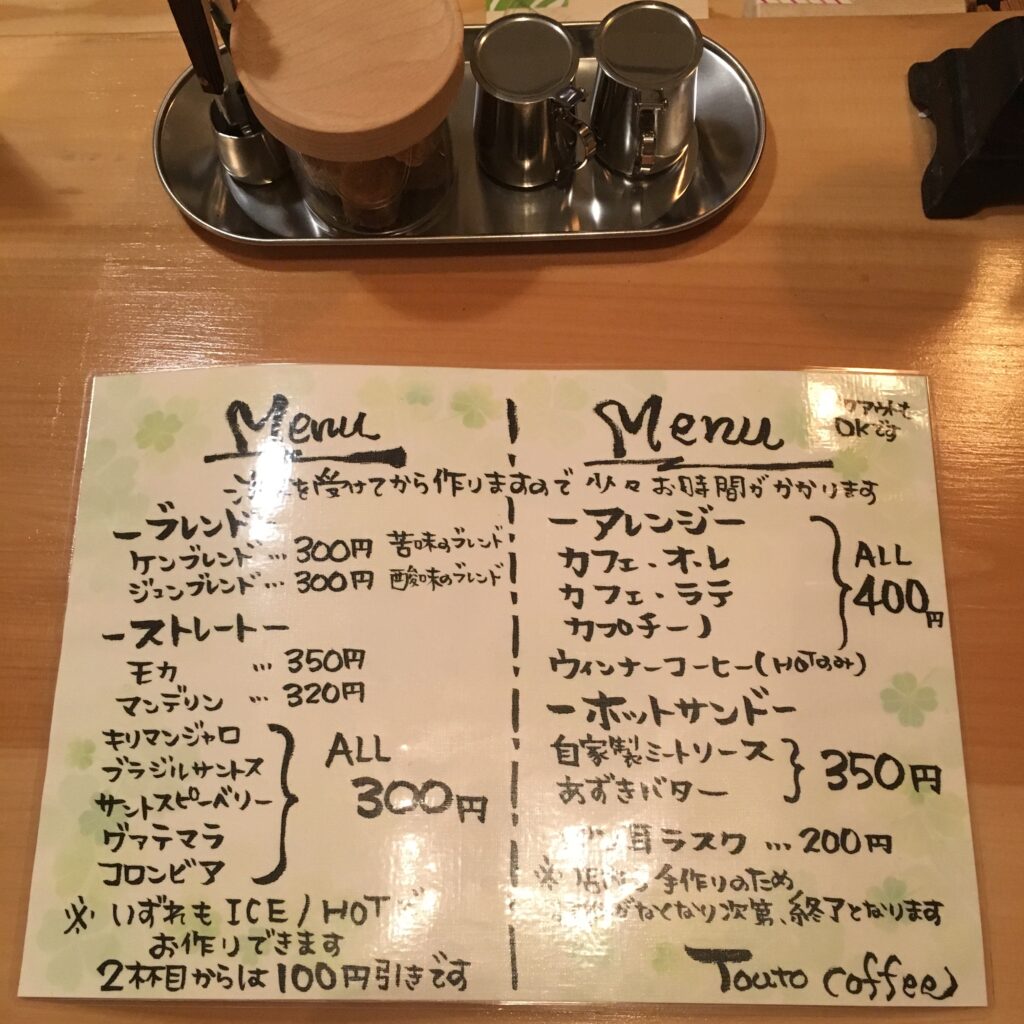 Menu
を受けてから作りますので 少々お時間がかかります
ーブレンドー
ケンブレンド … 300円 苦味のブレンド
ジュンブレンド … 300円 酸味のブレンド
ーストレートー
モカ … 350円
マンデリン … 320円
キリマンジャロ
ブラジルサントス
サントスピーベリー
ヴァテマラ
コロンビア
ALL
300円
※いずれもICE/HOT
お作りできます
2杯目からは100円引きです
Menu
クアウトも
OKです
ーアレンジー
カフェ・オ・レ
カフェ・ラテ
カプチーノ
ALL
400円
ウィンナーコーヒー(HOTのみ)
ーホットサンドー
自家製ミートソース
あずきバター
350円
耳ラスク … 200円
※ 手作りのため
がなくなり次第、終了となります
Touto Coffee